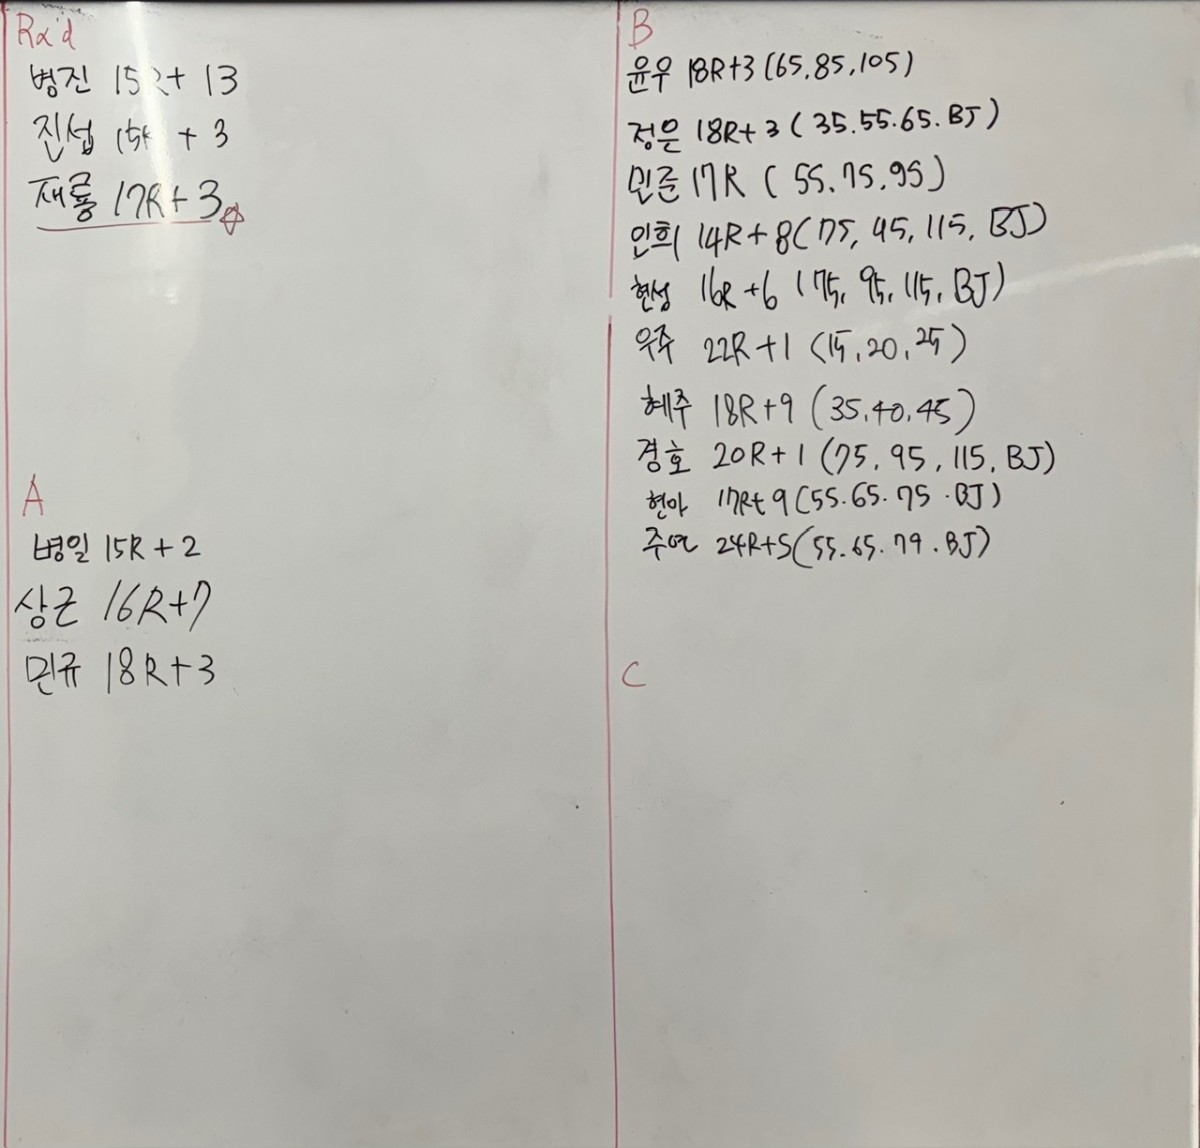 Rx'd
병진 15R+ 13
진섭 15R + 3
재룡 17R+3
A
병일 15R+2
상근 16R+7
민규 18R+3
B
윤우 18R+3(65,85,105)
정은 18R+3(35.55.65.BJ)
민준 17R (55.75.95)
인희 14R+8(75, 95, 115, BJ)
현성 16R+6 (75, 95, 115, BJ)
우주 22R+1 (15,20,25)
혜주 18R+9 (35,40,45)
경호 20R+1 (75,95,115,BJ)
현아 17R+9(55.65.75.BJ)
주연 24R+5(55.65.79.BJ)
C